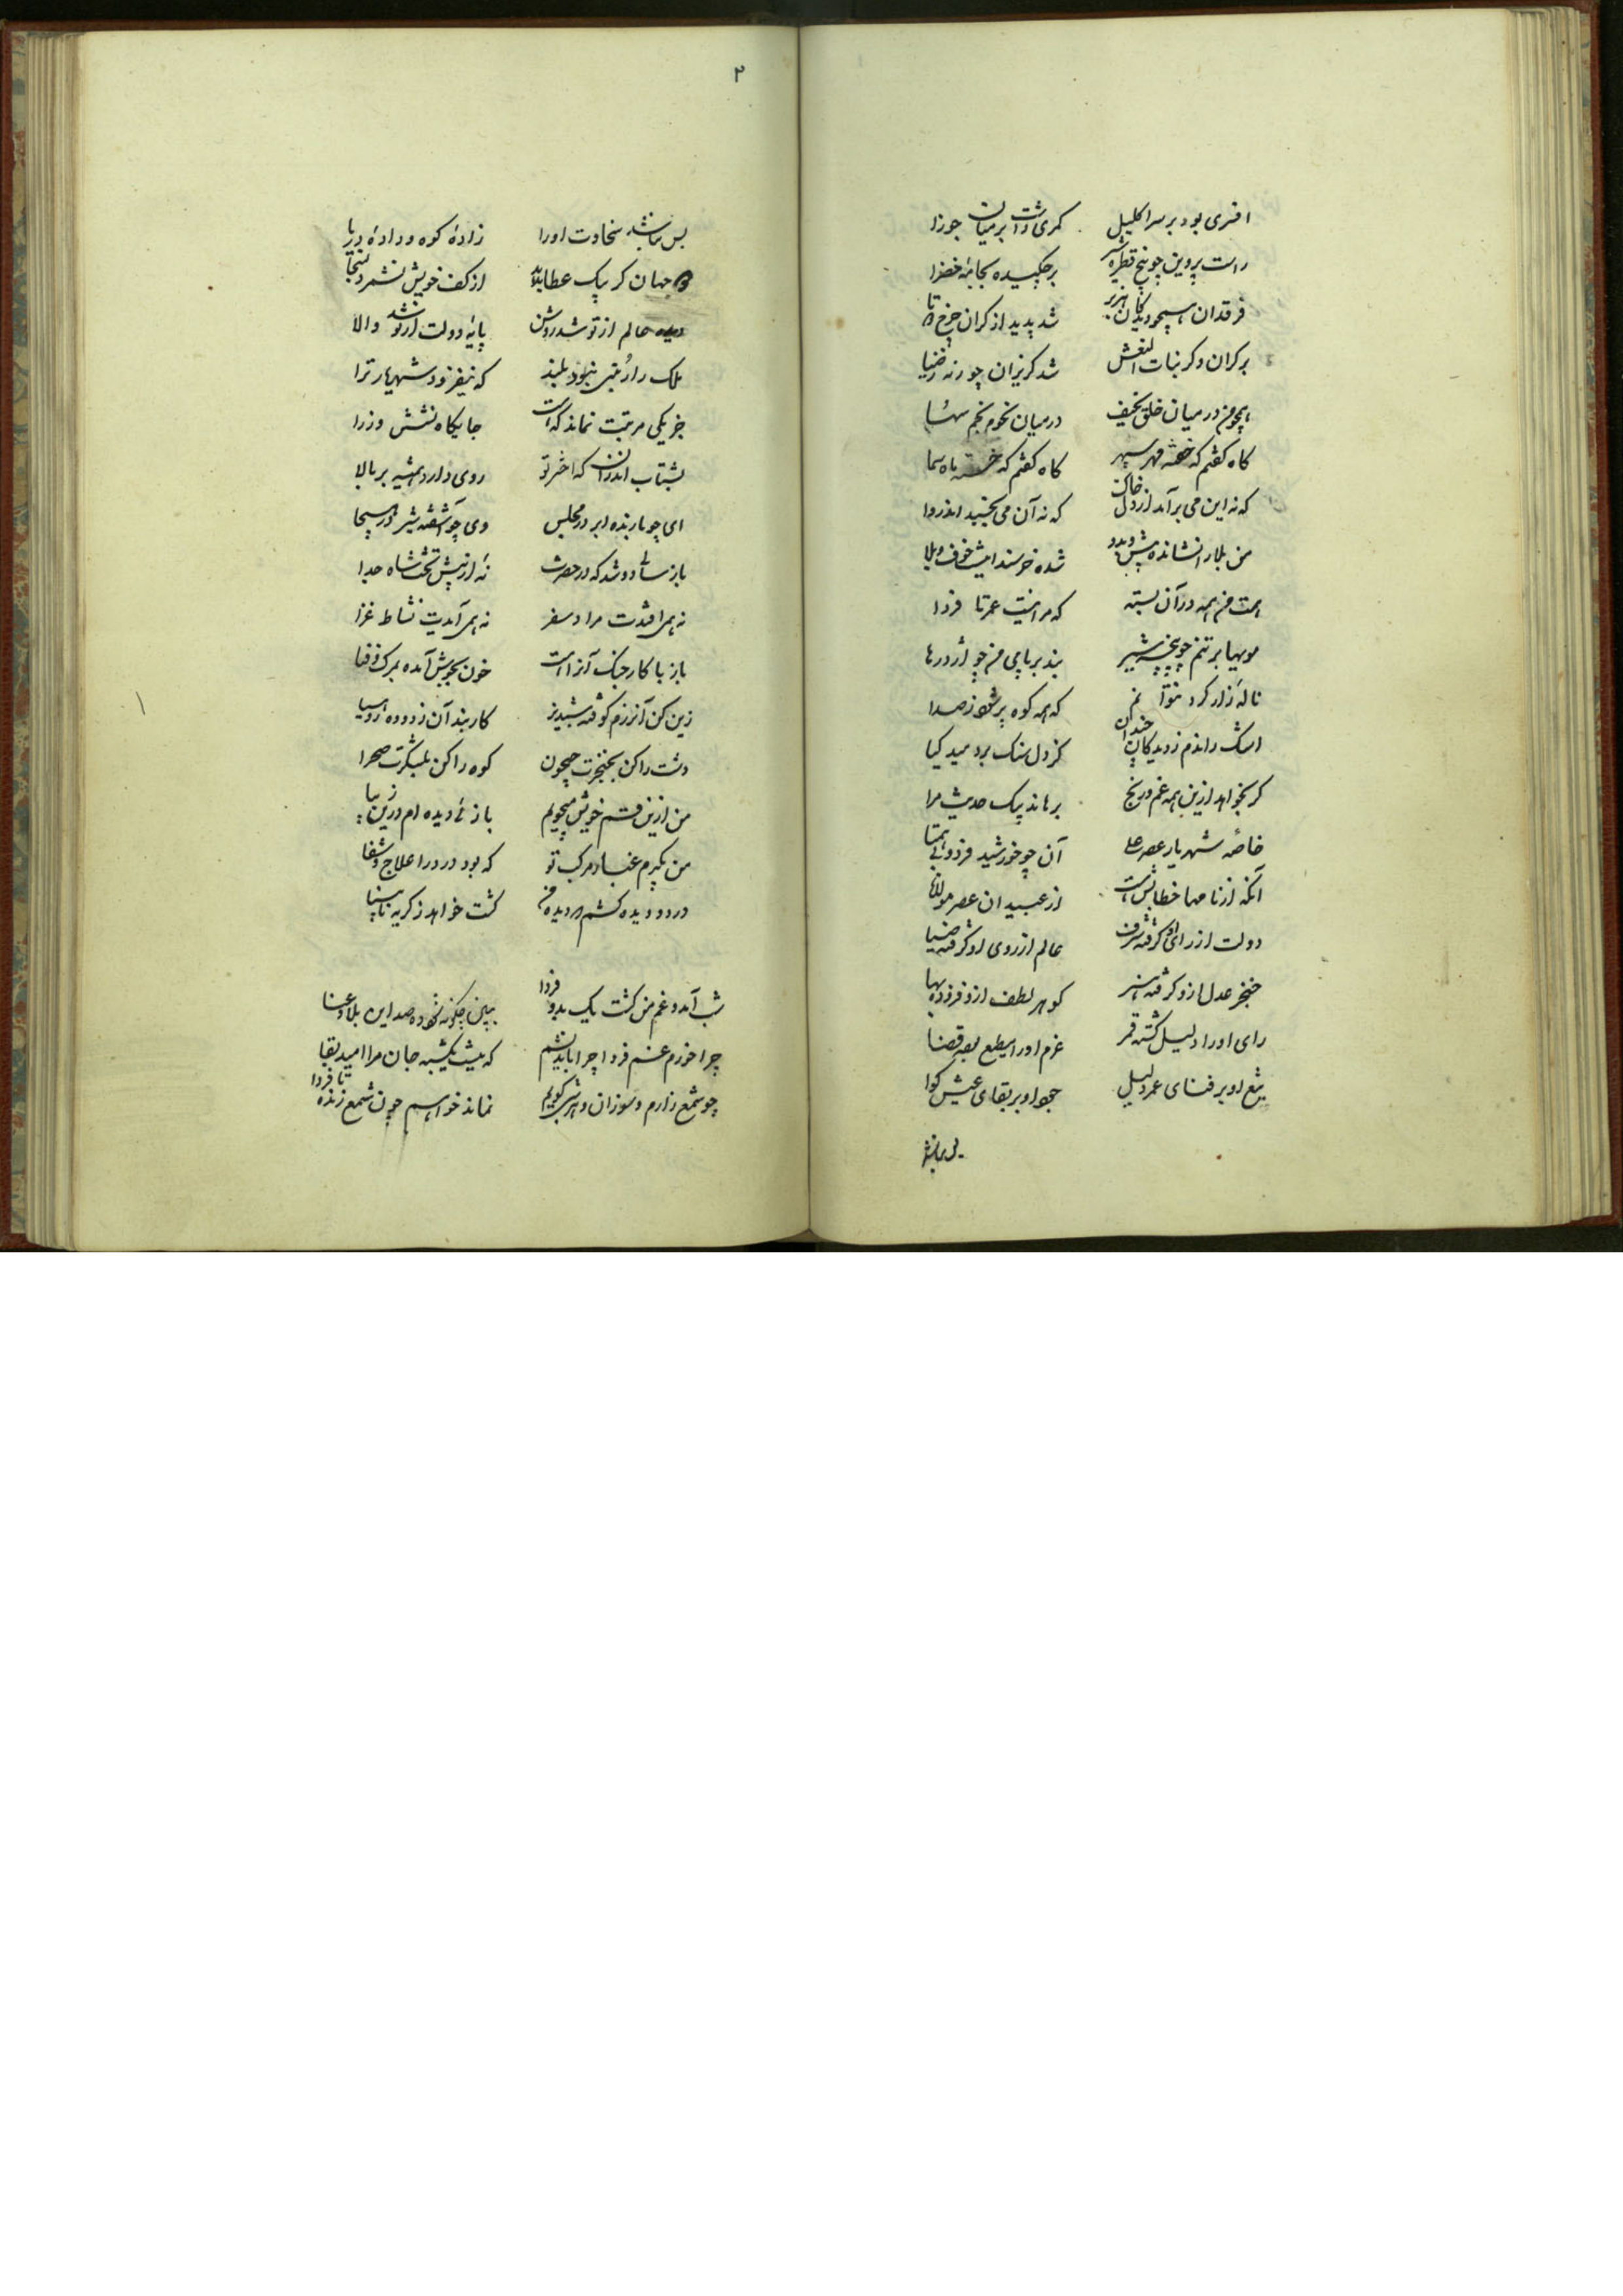 افسری بود بر سر اکلیل کمری داشت بر میان جوزا
راست پروین چو پنج قطره شیر بر چکیده بجامه خضرا
فرقدان همچو دیدکان هزبر شد پدید از کران چرخ دوتا
بر کران دکر بنات النعش شد کریزان چو رنه ز ضیا
همچو من در میان خلق نحیف در میان نجوم نجم سها
کاه کفتم که خفته مهر سپهر کاه کفتم که خسته ماه سما
که نه این می بر آید از دل خاک که نه آن می بجنبد اندروا
من بلا را نشانده پیش و بدو شده خرسند اینت خوف و بلا
همت من همه در آن بسته که مرا نیست عمر تا فردا
مویها بر تنم چو پنجه شیر بند بر پای من چو اژدرها
ناله زار کرد نتوانم که همه کوه پر شود ز صدا
اشک راندم ز دیدکان چندان کز دل سنک بر دمید کیا
کر بخواهد ازین همه غم و رنج برهاند بیک حدیث مرا
خاصه شهریار عصر علی آن چو خورشید فرد و بی همتا
آنکه از نامها خطابش هست از عبیدان عصر مولانا
دولت از رای او کرفته شرف عالم از روی او کرفته ضیا
خنجر عدل ازو کرفته هنر کوهر لطف ازو فزوده بها
رای او را دلیل کشته قمر عزم او را مطیع بوده قضا
تیغ او بر فنای عمر دلیل جود او بر بقای عیش کوا
بس نباشد
۲
بس نباشد سخاوت او را زاده کوه و داده دریا
جهان کر بیک عطا بدهد از کف خویش نشمرد سخا
دیده عالم از تو شد روشن پایه دولت از تو شد والا
ملک را رتبتی نبود بلند که نیفزود شهریار ترا
جز یکی مرتبت نماند که هست جایکاه نشستن وزرا
بشتاب اندر آن که اختر تو روی دارد همیشه بر بالا
ای چو بارنده ابر در مجلس وی چو آشفته شیر در هیجا
باز سالی دو شد که در حضرت نه از پیش تخت شاه جدا
نه همی افتدت مراد سفر نه همی آیدت نشاط غزا
باز با کار جنک آن را هست خون بجوش آمده بمرک و فنا
زین کن آن رزم کوفته شبدیز کار بند آن زدوده روهینا
دشت را کن بخنجرت جیحون کوه را کن بلشکرت صحرا
من ازین قسم خویش میجویم باز نادیده ام درین زیبا
من بکیرم عنان مرکب تو که بود درد را علاج و شفا
درد دو دیده کشتم و دیده من کشت خواهد ز کریه نابینا
شب آمد و غم من کشت یک بدو فردا ببین چکونه شود صد این بلا و عنا
چرا خورم غم فردا چرا بباید نیشم که بیش یکشبه جان مرا امید بقا
چو شمع زارم و سوزان و هر شبی کویم نماند خواهم چون شمع زنده تا فردا